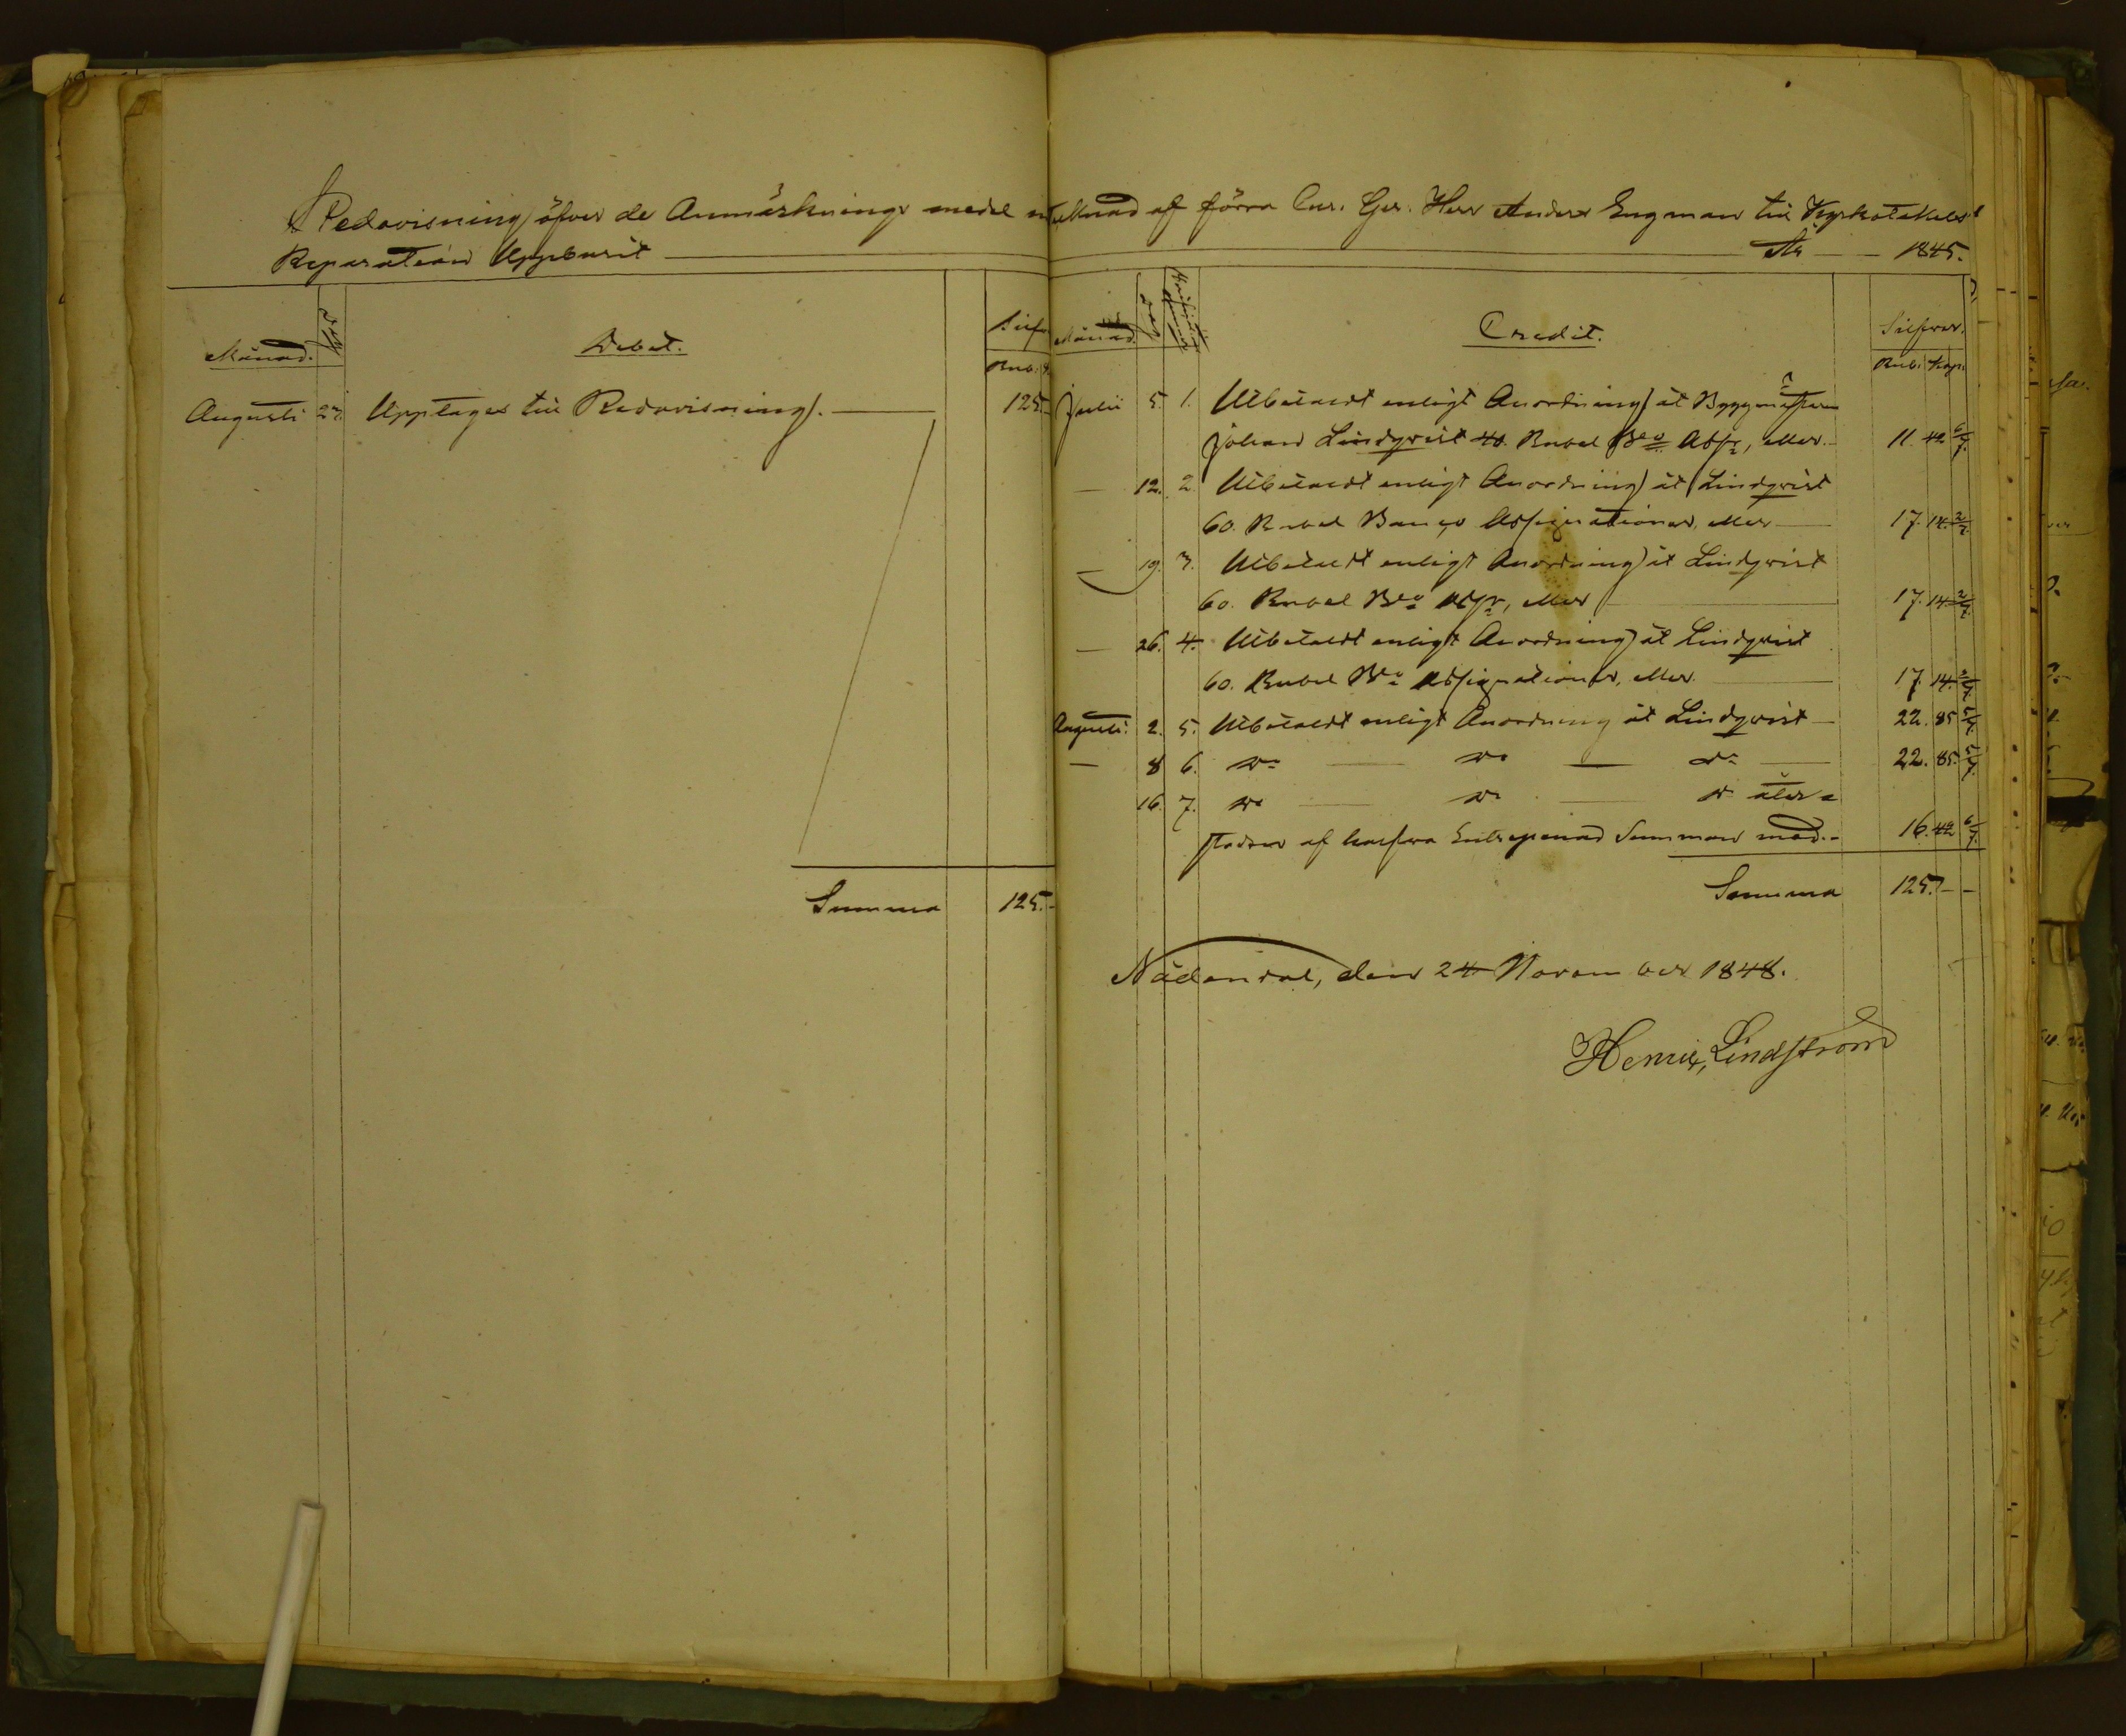 Redovisning öfver de Anmärknings medel af förra Cur. Ger. Herr Anders Engman till Kyrkotakets
Reparation Uppburit År 1845.
Månad. Dag Debet. Silfv
Rub.
Augusti 27. Upptages till Redovisning. 125.
Summa 125.-
Månad. Dag Credit. Silfver.
Rub. Kop.
Julii 5. 1. Utbetaldt enligt Anordning åt Byggmästaren
Johan Lindqvist 40. Rubel Bco Assr, eller 11. 42 6/7.
— 12. 2. Utbetaldt enligt Anordning åt Lindqvist
60. Rubel Banco Assignationer, eller 17. 14. 2/7.
— 19. 3. Utbetaldt enligt Anordning åt Lindqvist
60. Rubel Bco Assr, eller 17. 14. 2/7.
— 26. 4. Utbetaldt enligt Anordning åt Lindqvist
60. Rubel Bco Assignationer, eller 17. 14. 2/7.
Augusti. 2. 5. Utbetaldt enligt Anordning åt Lindqvist 22. 85 5/7.
— 8 6. Do Do Do 22. 85. 5/7.
16. 7. Do Do Do åter-
stoden af halfva Entreprenad Summan med.- 16. 42 6/7.
Summa 125.--
Nådendal, den 24 November 1848.
Henric Lindström